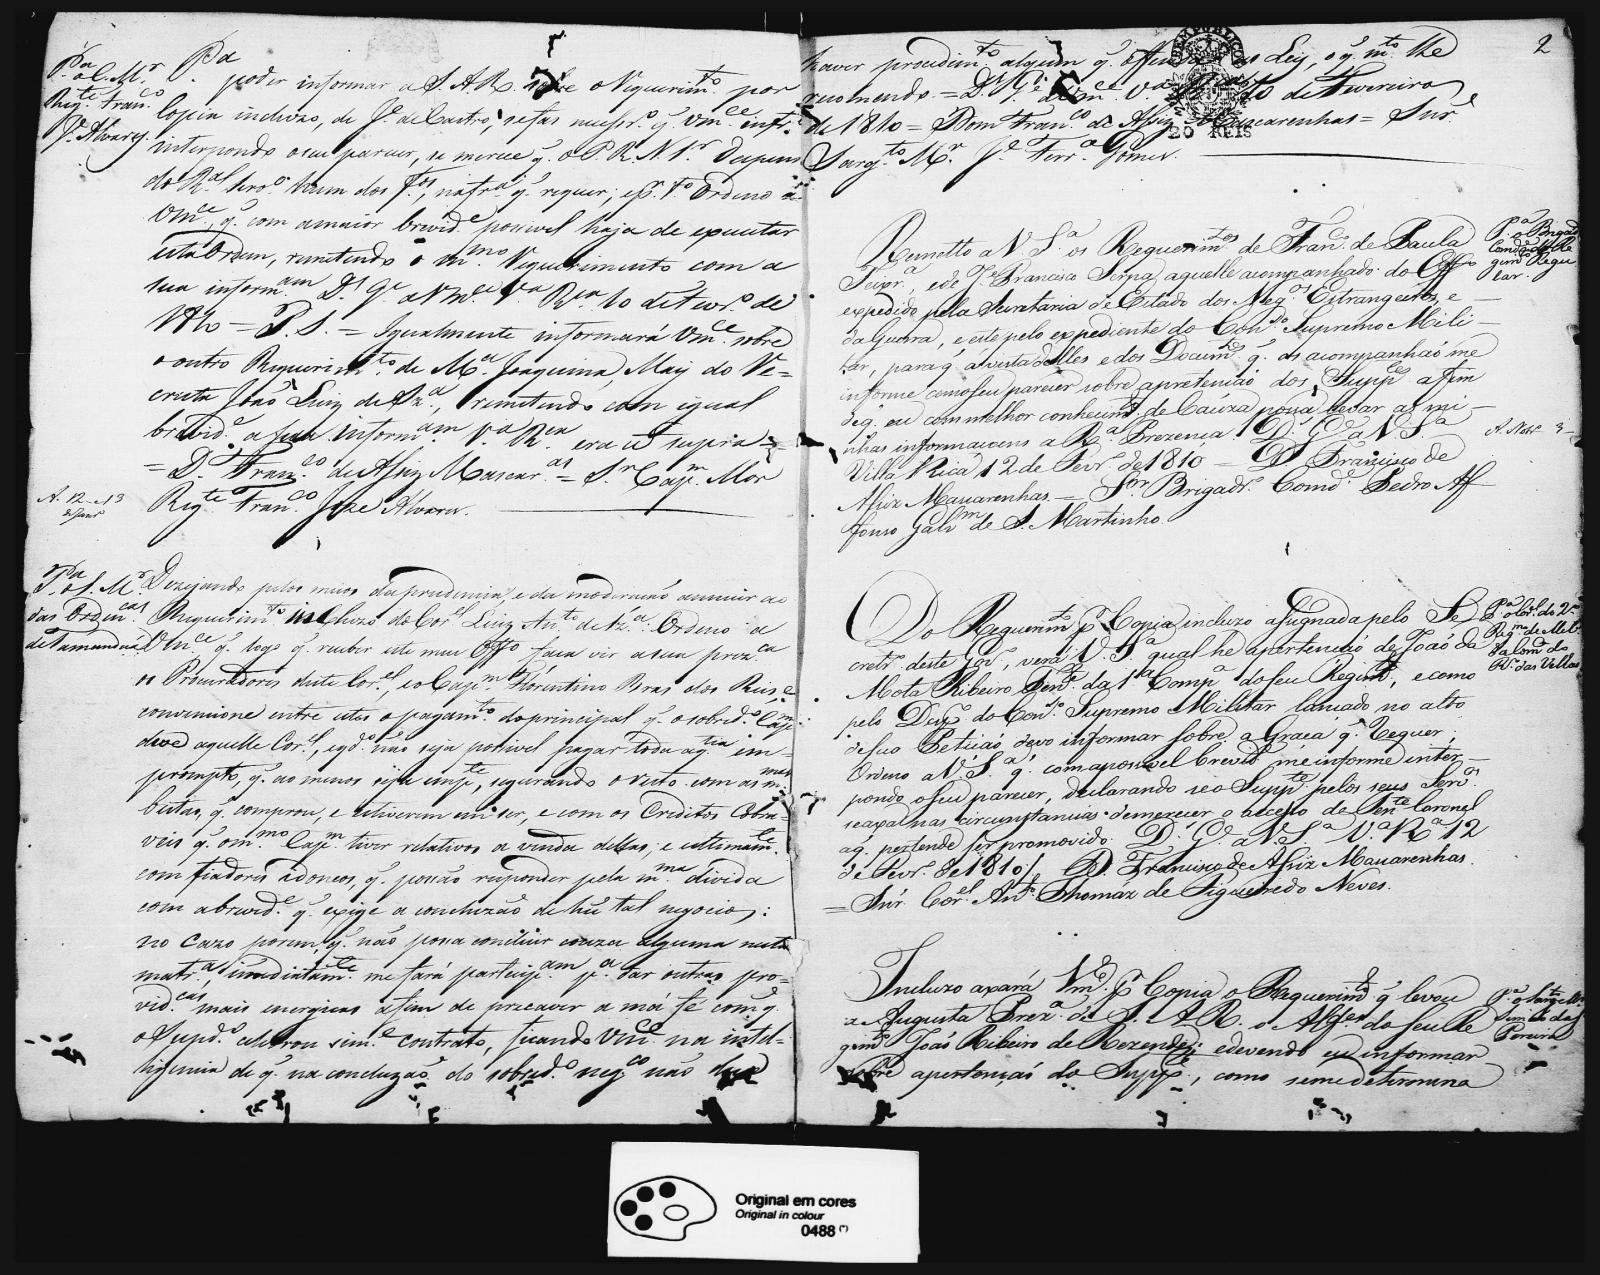 P.ª o C. M.r
Reg.te Fran.co
J.e Alvarez
P.ª poder informar a S. A. R. sobre o Requerim.to por
Copia incluzo, de J.e de Castro, se faz necessr.o q. Vm.ce infr.e
interpondo o seu parecer, se merece q. o P. R. N. Sr. Dispense
do R.al Serv.o hum dos f.os, na fr.a q. requer; e p.r t.o Ordeno a
Vm.ce, q. com a maior brevid.e possivel haja de executar
esta Ordem, remetendo o m.mo Requerimento com a
sua inform.am D.s G.e a Vm.ce V.a R.ca 10 de Fevr.o de
1810 = P. S. = Igualmente informará Vm.ce sobre
o outro Requerim.to de M.a Joaquina, May do Re=
cruta João Luiz de Sz.a, remetendo com igual
brevid.e a sua inform.am V.a R.ca era ut supra =
= D. Fran.co de Assiz Mascar.as = Sr. Cap.m Mor
Reg.te Fran.co Joze Alvarez.
A. 12 e 13
de Janr.o
P.ª o S. M.r
das Orden.cas
de Tamanduá
Dezejando pelos meios da prudencia, e da moderação annuir ao
Requerim.to incluzo do Cor.el Luiz Ant.o de Sz.a: Ordeno a
Vm.ce q. logo q. receber este meu Off.o faça vir a sua prez.ca
os Procuradores deste Cor.el, e o Cap.m Florentino Bras dos Reis, e
convencione entre estes o pagam.to do principal q. o sobred.o Cap.m
deve aquelle Cor.el, e qd.o não seja possivel pagar toda a q.tia im=
prompto, q. ao menos seja em p.te, segurando o resto com as m.mas
bestas, q. comprou, e estiverem em ser, e com os Creditos Cobra=
veis q. o m.mo Cap.m tiver relativos a venda dellas, e ultimam.te
com fiadores idoneos, q. possão responder pela m.ma divida
com a brevid.e q. exige a concluzão de hu tal negocio:
no cazo porem, q. não possa concluir couza alguma nesta
matr.a, imediatam.te me fará particip.am p.a dar outras pro=
vid.cas mais energicas a fim de precaver a má fé com q.
o Supd.o celebrou sim.e contrato, ficando Vm.ce na intel=
ligencia de q. na concluzão do sobred.o neg.co não deve
2
haver procedim.to algum q. offenda as Leis, o q. m.to lhe
recomendo = D. G.e a Vm.ce V.a Rica 10 de Fevereiro
de 1810 = Dom Fran.co de Assiz Mascarenhas = Snr.
Sarg.to M.r J.e Ferr.a Gomes.
20 REIS
P.ª o Brigad.r
Comd.e do Re
gim.to Regu
lar.
Remetto a V. S.a os Requerim.tos de Fran.co de Paula
Teixr.a, e de J.e Francisco Serpa, aquelle acompanhado do Off.o
expedido pela Secretaria de Estado dos Neg.os Estrangeiros, e
da Guerra, e este pelo expediente do Con.so Supremo Mili=
tar, para q. á vista delles e dos Docum.tos q. os acompanhão me
informe com o seu parecer sobre a pretenção dos Supp.es a fim
de q. eu com melhor conhecim.to de Cauza possa levar as mi=
nhas informaçoens a R.a Prezença. D.s G.e a V. S.a
Villa Rica 12 de Fevr.o de 1810 = D. Francisco de
Assiz Mascarenhas = Sr. Brigadr. Comd.e Pedro Af
fonso Galv.m de S. Martinho.
A. Nov.e 3
P.ª o Cor.el do 2.o
Reg.m de Mel.
da Com.ca do
R.o das Velhas
Do Requerim.to p.r Copia incluzo assignada pelo Se
cretr.o deste Gov.o, verá V. S.a qual he a pertenção de João da
Mota Ribeiro Ten.e da 1.a Comp.a do seu Regim.to, e como
pelo Desp.o do Con.so Supremo Militar lancado no alto
de sua Petição, devo informar sobre a Graça q. requer,
Ordeno a V. S.a q. com a possivel brevid.e me informe inter=
pondo o seu parecer, declarando se o Supp.te pelos seus Serv.os
se axa nas circunstancias de merecer o accesso de Ten.te Coronel
a q. pertende ser promovido. D.s G.e a V. S.a V.a R.a 12
de Fevr.o de 1810 /. D. Francisco de Assiz Mascarenhas.
= Snr. Cor.el Ant.o Thomáz de Figueiredo Neves.
P.ª o Sarg.to M.r
Pereira
Incluzo axará Vm.ce p.r Copia o Requerim.to q. levou
a Augusta Prez.a de S. A. R. o Alf.es do seu Re
gim.to João Ribeiro de Rezende; e devendo eu informar
sobre a pertenção do Supp.e, como se me determina
Original em cores
Original in colour
0488 (*)